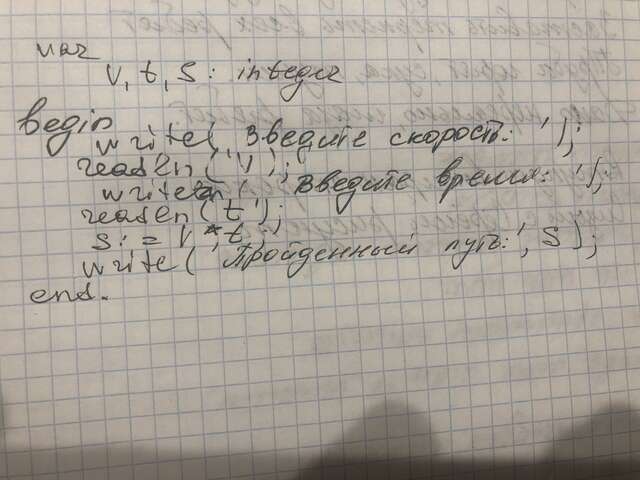 var
v, t, s: integer
begin
write( Введите скорость: ');
readln('v');
writeln( Введите время: ');
readln('t');
s: = v * t;
write( 'Пройденный путь:', s);
end.